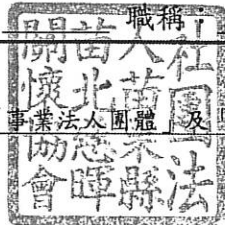 職稱：
事業法人團體」及「
社團法
人苗栗縣
苗北慈暉
關懷協會